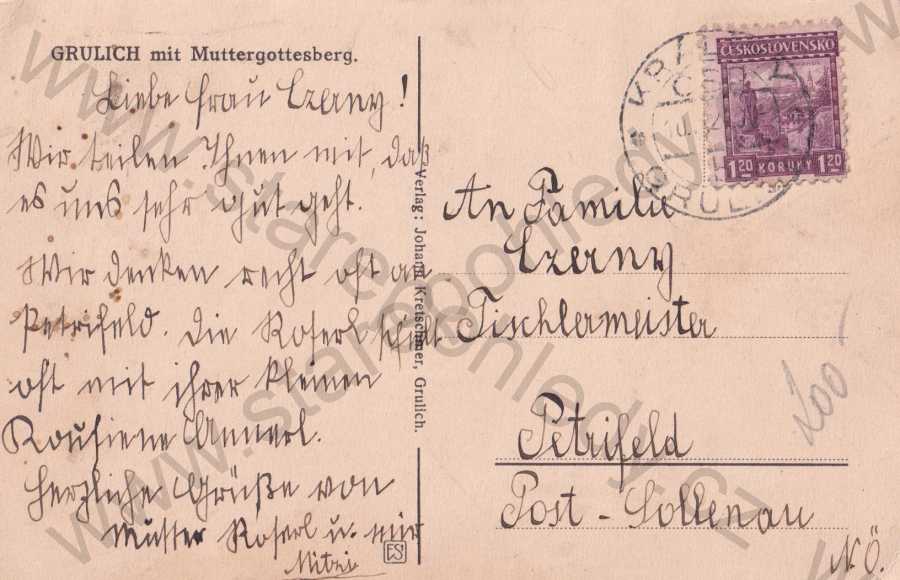 GRULICH mit Muttergottesberg.
Liebe Frau Czerny!
Wir teilen Ihnen mit, daß
es uns sehr gut geht.
Wir denken recht oft an
Petrifeld. Die Roserl spielt
oft mit ihrer kleinen
Kousiene Annerl.
Herzliche Grüße von
Mutter Roserl u. mir
Mitzi
FS
Verlag: Johann Kretschmer, Grulich.
ČESKOSLOVENSKO
1.20 KORUNY 1.20
KRÁLÍKY
GRULICH
An Familie
Czerny
Tischlermeister
Petrifeld
Post-Sollenau
N.Ö.
200-
www.starepohledy.cz